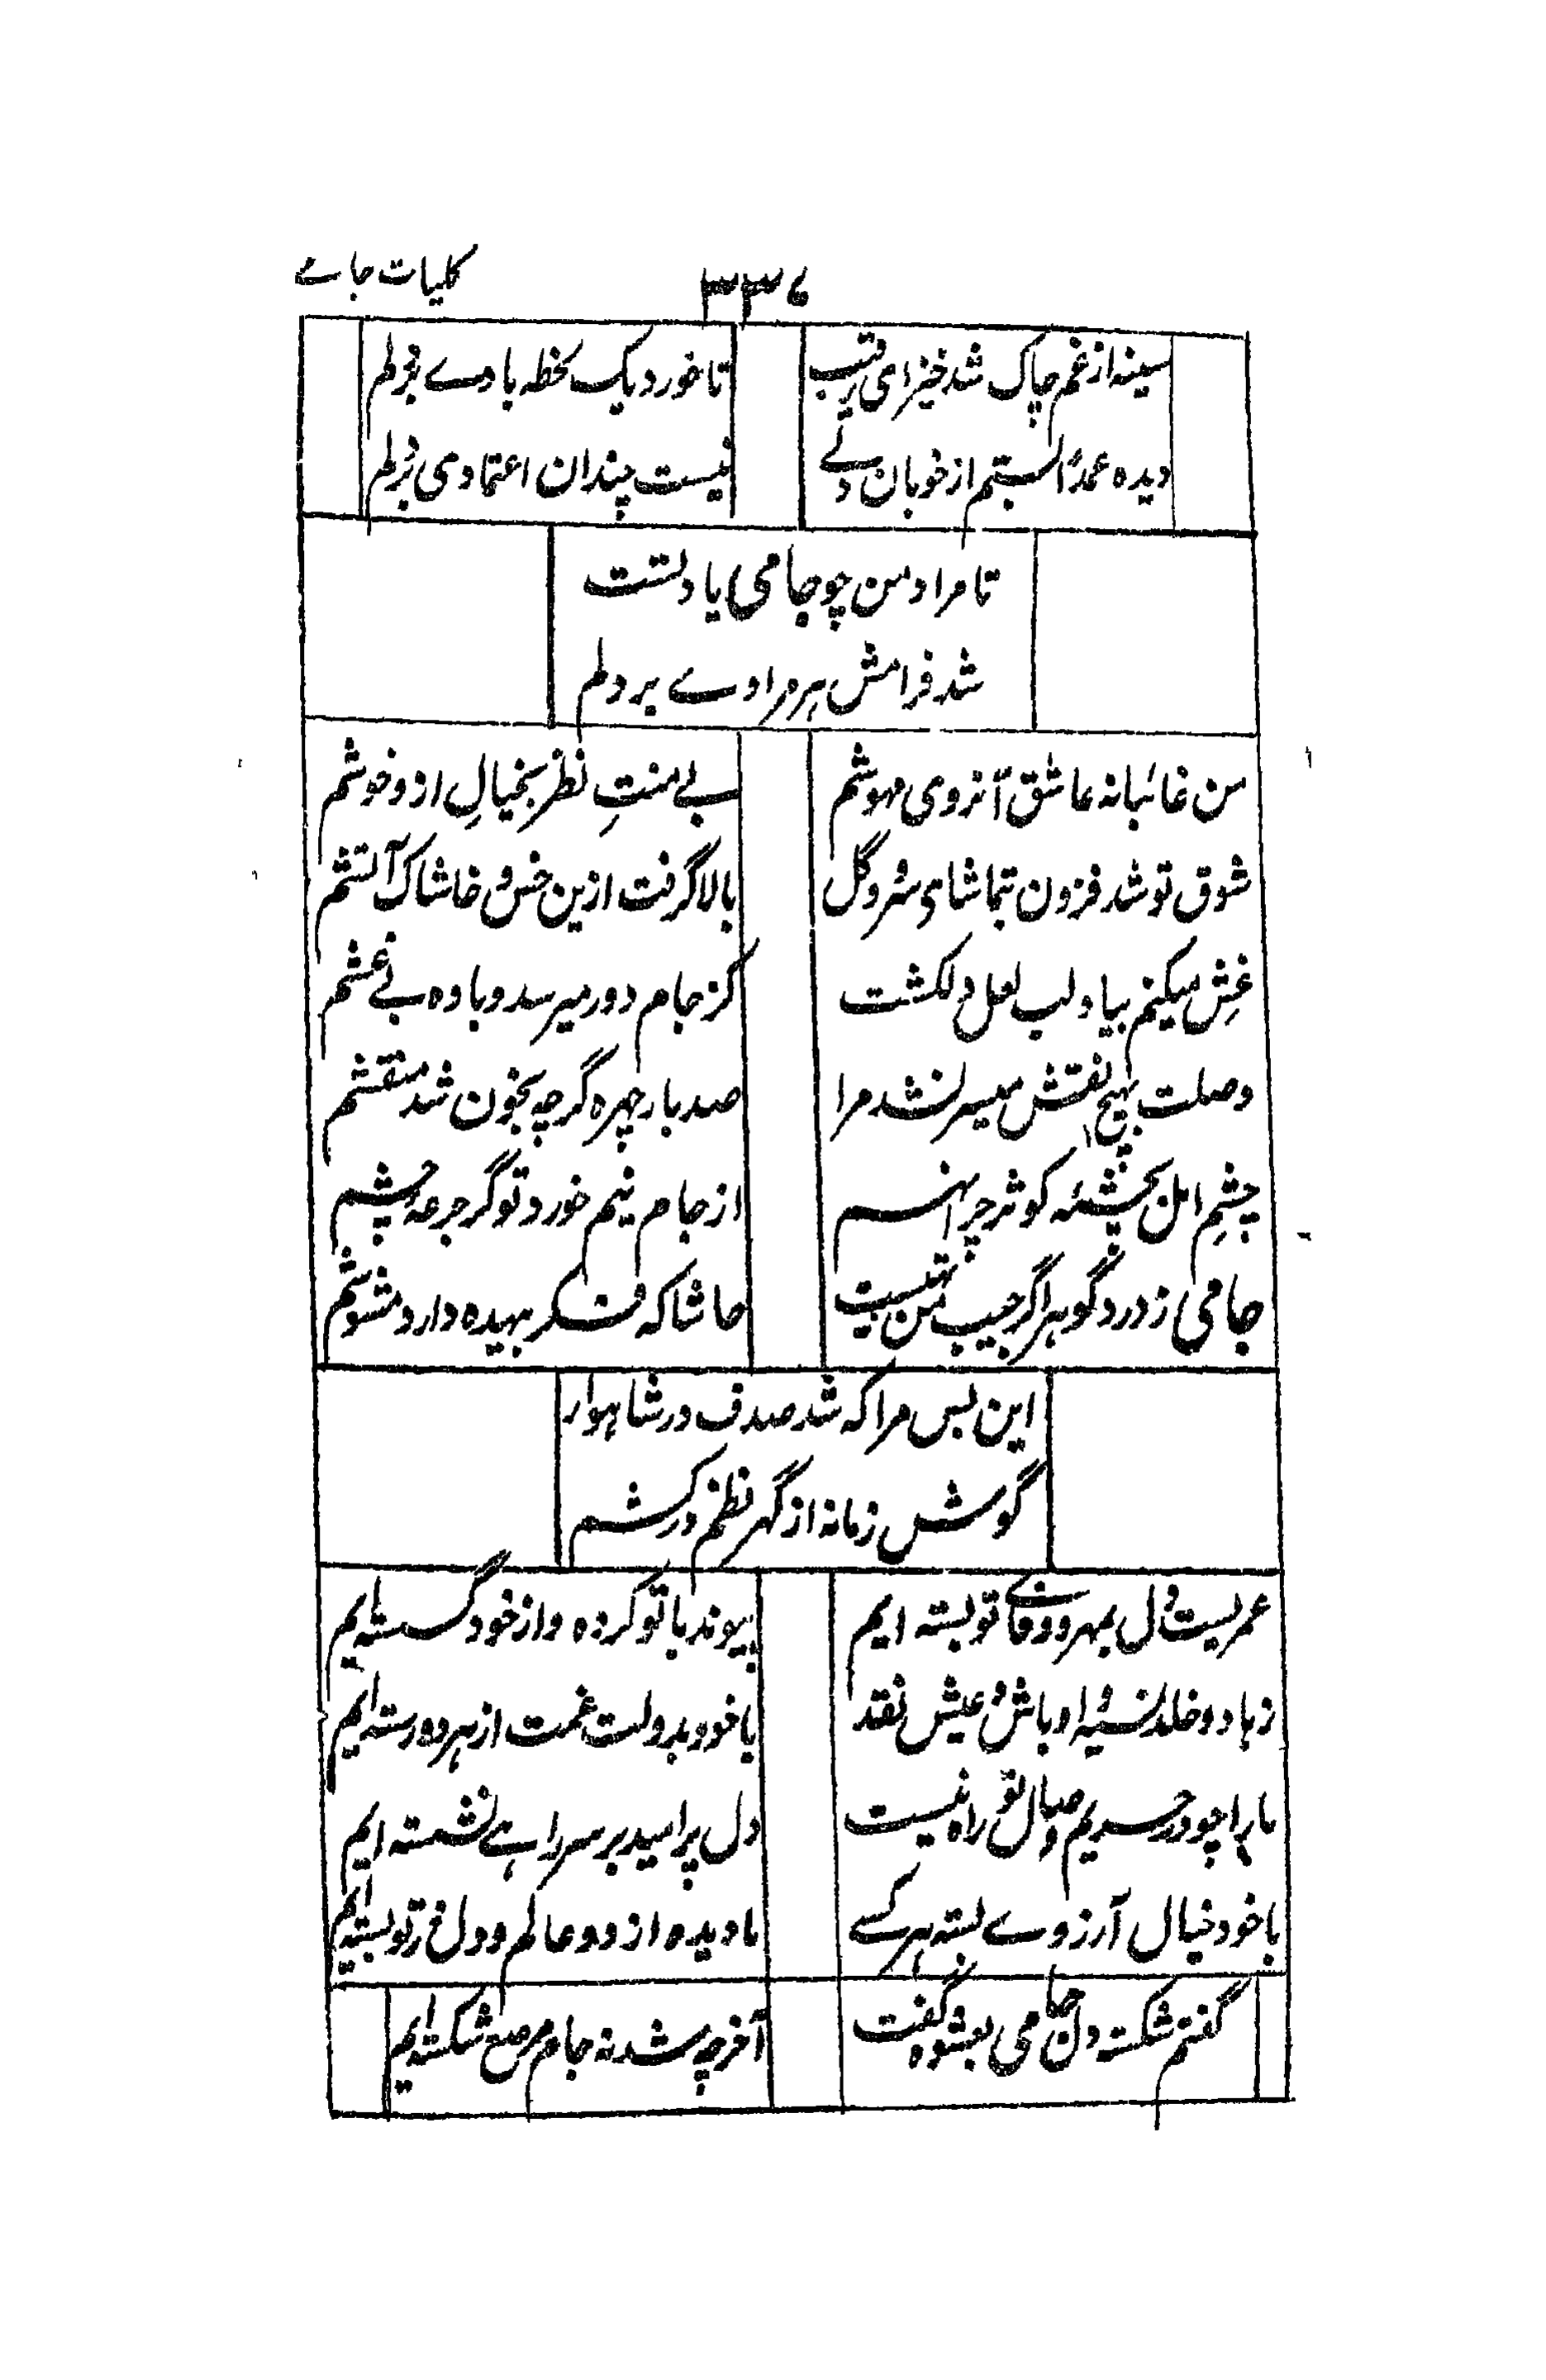 کلیات جامے
۳۳۶
سینہ از غم چاک شد خیز ای رقیب
تا خورد یک لحظہ بادے بر دلم
دیدہ عمدًا بستم از خوبان ولے
نیست چندان اعتمادمی بر دلم
تا مراد من چو جامی یاد تست
شد فرامش ہر مرادے بر دلم
من غائبانہ عاشق آنروی مہوشم
بے منتِ نظر بخیالِ از و خوشم
شوق تو شد فزون بتماشای سرو و گل
بالا گرفت ازین خس و خاشاک آتشم
غِش میکنم بیاد لب لعل دلکشت
کز جام دور میرسد و بادہ بے غشم
وصلت بہیچ نقش میسر نشد مرا
صد بار چہرہ گرچہ بخون شد منقشم
چشمِ امل بچشمۂ کوثر چرا نہم
از جام نیم خورد تو گر جرعہ چشم
جامی ز درد گوہر اگر جیب من تہیست
حاشا کہ فکر بیہدہ دارد مشوشم
این بس مرا کہ شد صدف در شاہوار
گوش زمانہ از گہر نظم درکشم
عمریست دل بمہر و وفای تو بستہ ایم
پیوند با تو کردہ و از خود گسستہ ایم
زہاد و خلد نسیہ و اوباش و عیش نقد
با خود بدولت غمت از ہر دو رستہ ایم
ما را چو در حریم وصال تو راہ نیست
دل پر امید بر سر راہے نشستہ ایم
با خود خیال آرزوے بستہ ہر کسے
ما دیدہ از دو عالم و دل در تو بستہ ایم
گفتم شکستہ دل جامی بعشوہ گفت
آخر چہ شد نہ جام مرصع شکستہ ایم